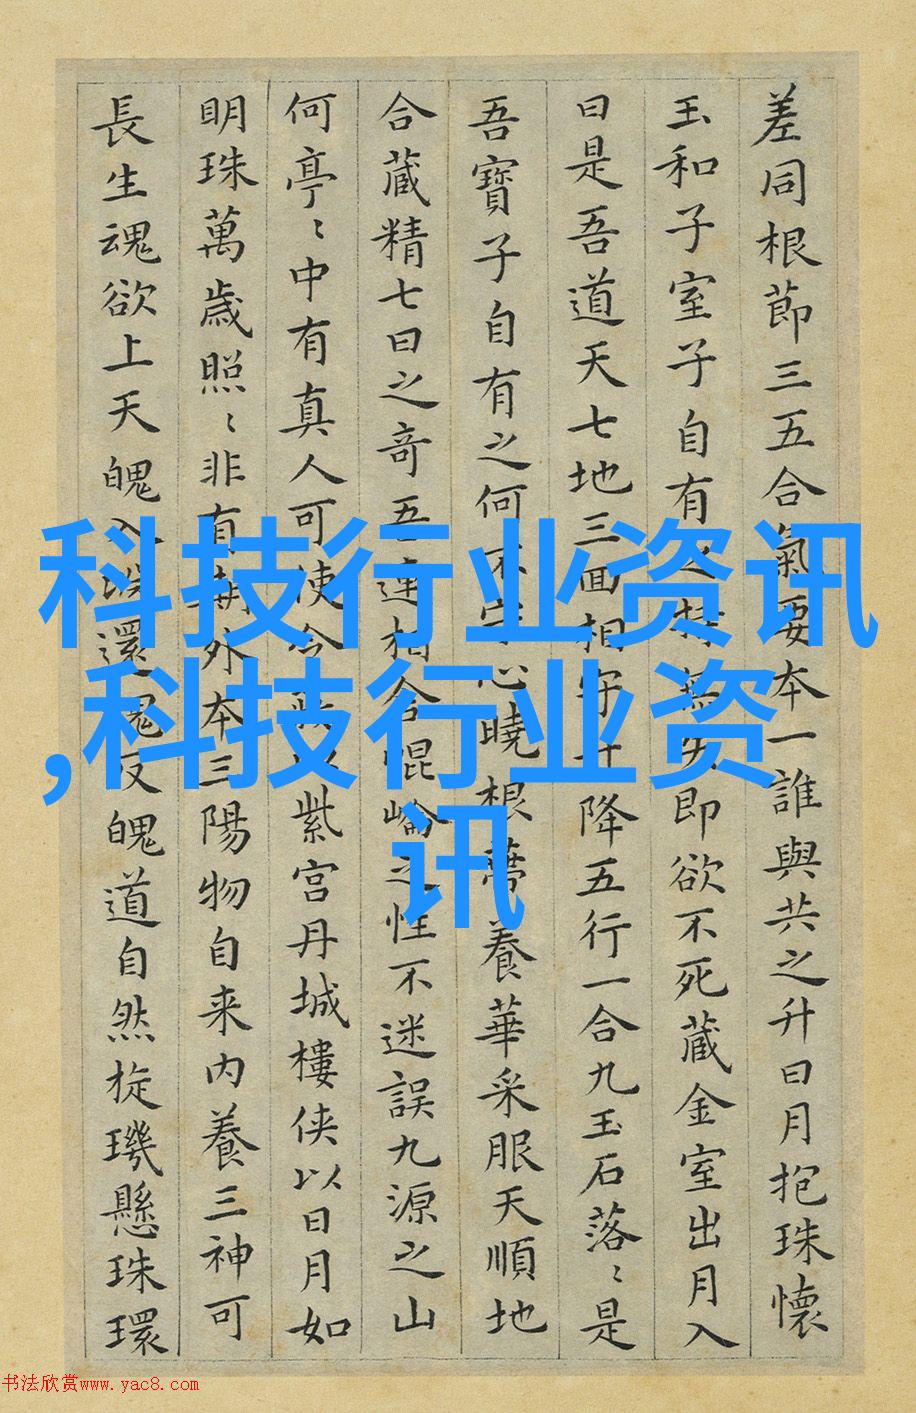 差同根節三五合氣要本一誰與共之升日月抱珠懷
玉和子室子自有之持無失即欲不死藏金室出月入
日是吾道天七地三回相守升降五行一合九玉石落〻是
吾寶子自有之何不守心曉根蒂養華采服天順地
合藏精七日之奇吾連相合崐崘之性不迷誤九源之山
何亭〻中有真人可使令以紫宮丹城樓俠以日月如
明珠萬歲照〻非有期外本三陽物自来内養三神可
長生魂欲上天魄入還魂反魄道自然旋璣懸珠環
科技行业资讯
,科技行业资
讯
书法欣赏www.yac8.com